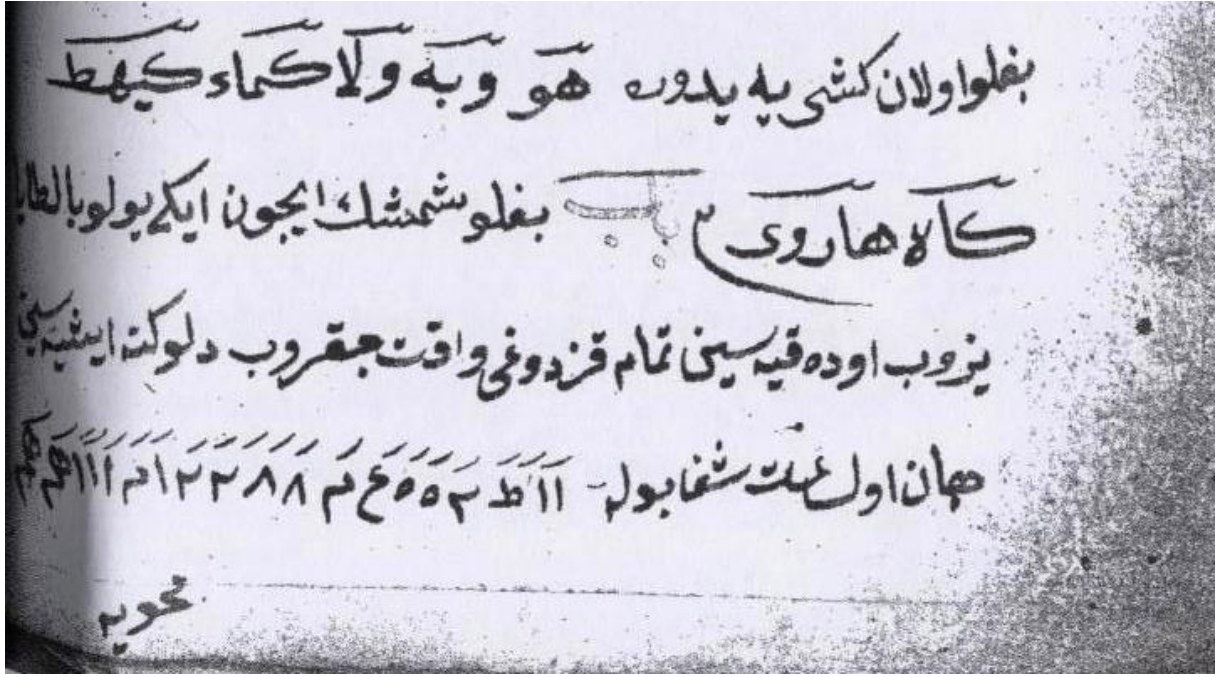 بغلو اولان كشى يه يدوره هو وبه ولا كماء كيهط
كاه هاروى باب بغلو شمشك ايچون ايكى يولو بالطا
يزوب اوده قيه سين تمام قزدوغى واقت جقروب دلوكنه ايشيه سين
همان اول علت شفا بوله ااا ط ٢ ٥ ٥ ع م ٨ ٨ ٢ ٢ ا م ااا
نحويه